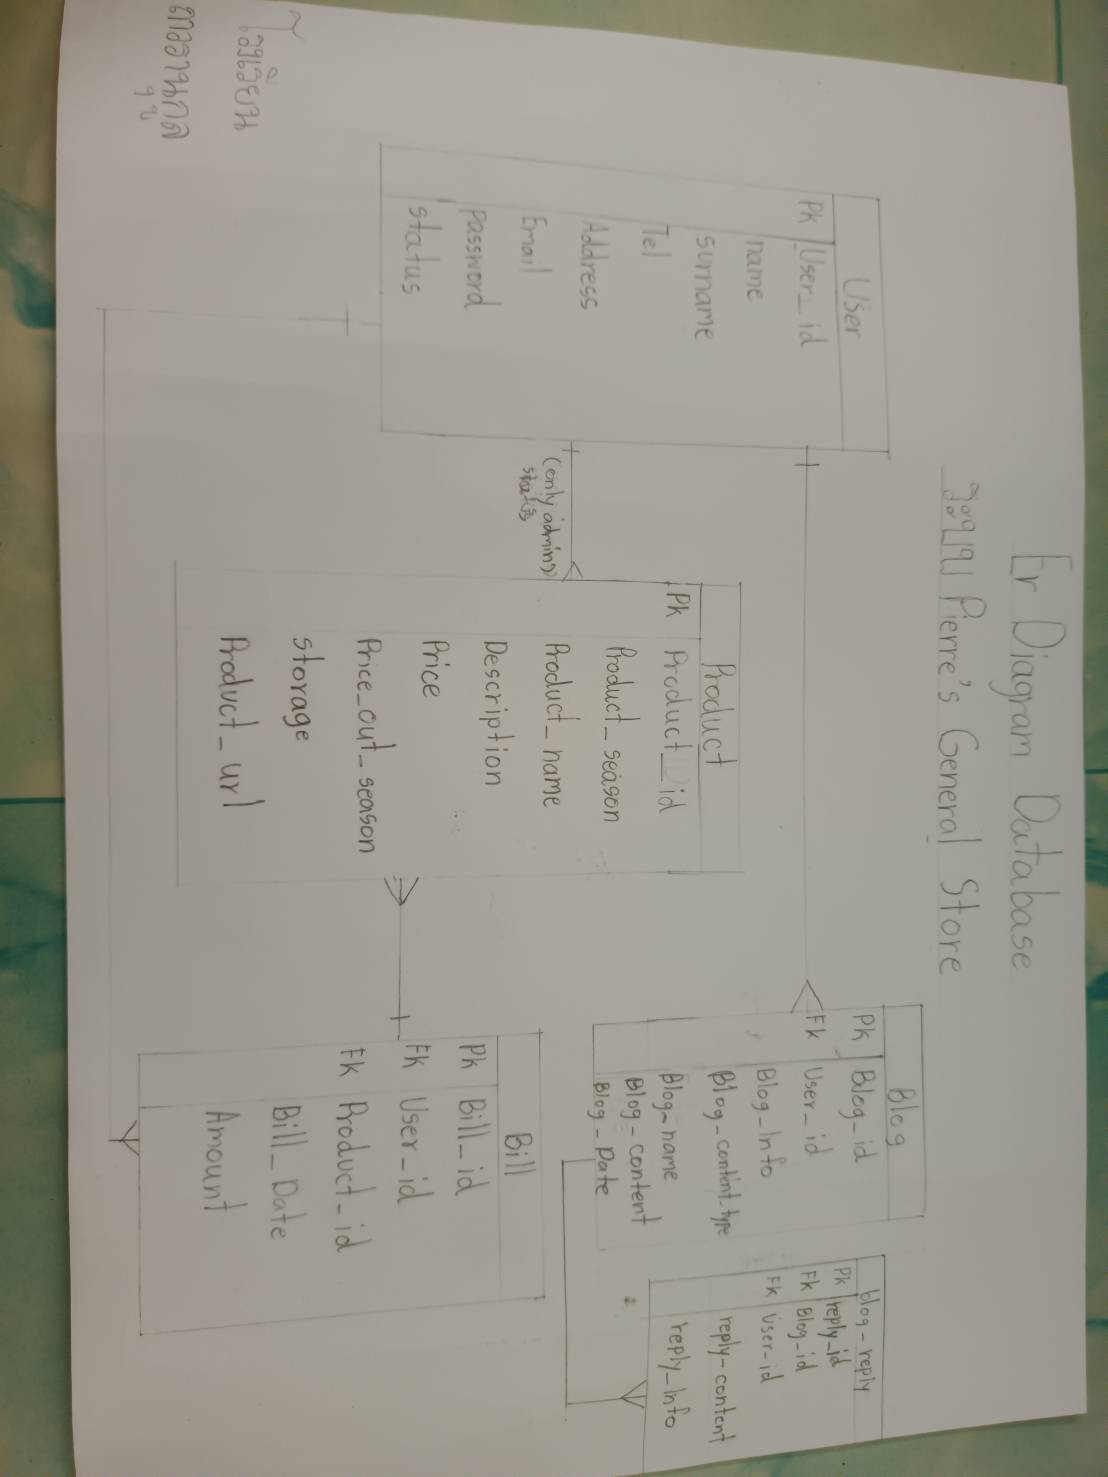 Er Diagram Database
Pierre's General Store
User
Pk User_id
name
surname
Tel
Address
Email
password
status
(only admin)
status
Product
Pk Product_id
Product_season
Product_name
Description
Price
Price_out_season
storage
Product_url
Blog
PK Blog_id
FK User_id
Blog_Info
Blog_content_type
Blog_name
Blog_content
Blog_Date
blog-reply
PK reply_id
FK Blog_id
FK User-id
reply-content
reply_Info
Bill
PK Bill_id
FK User_id
FK Product_id
Bill_Date
Amount